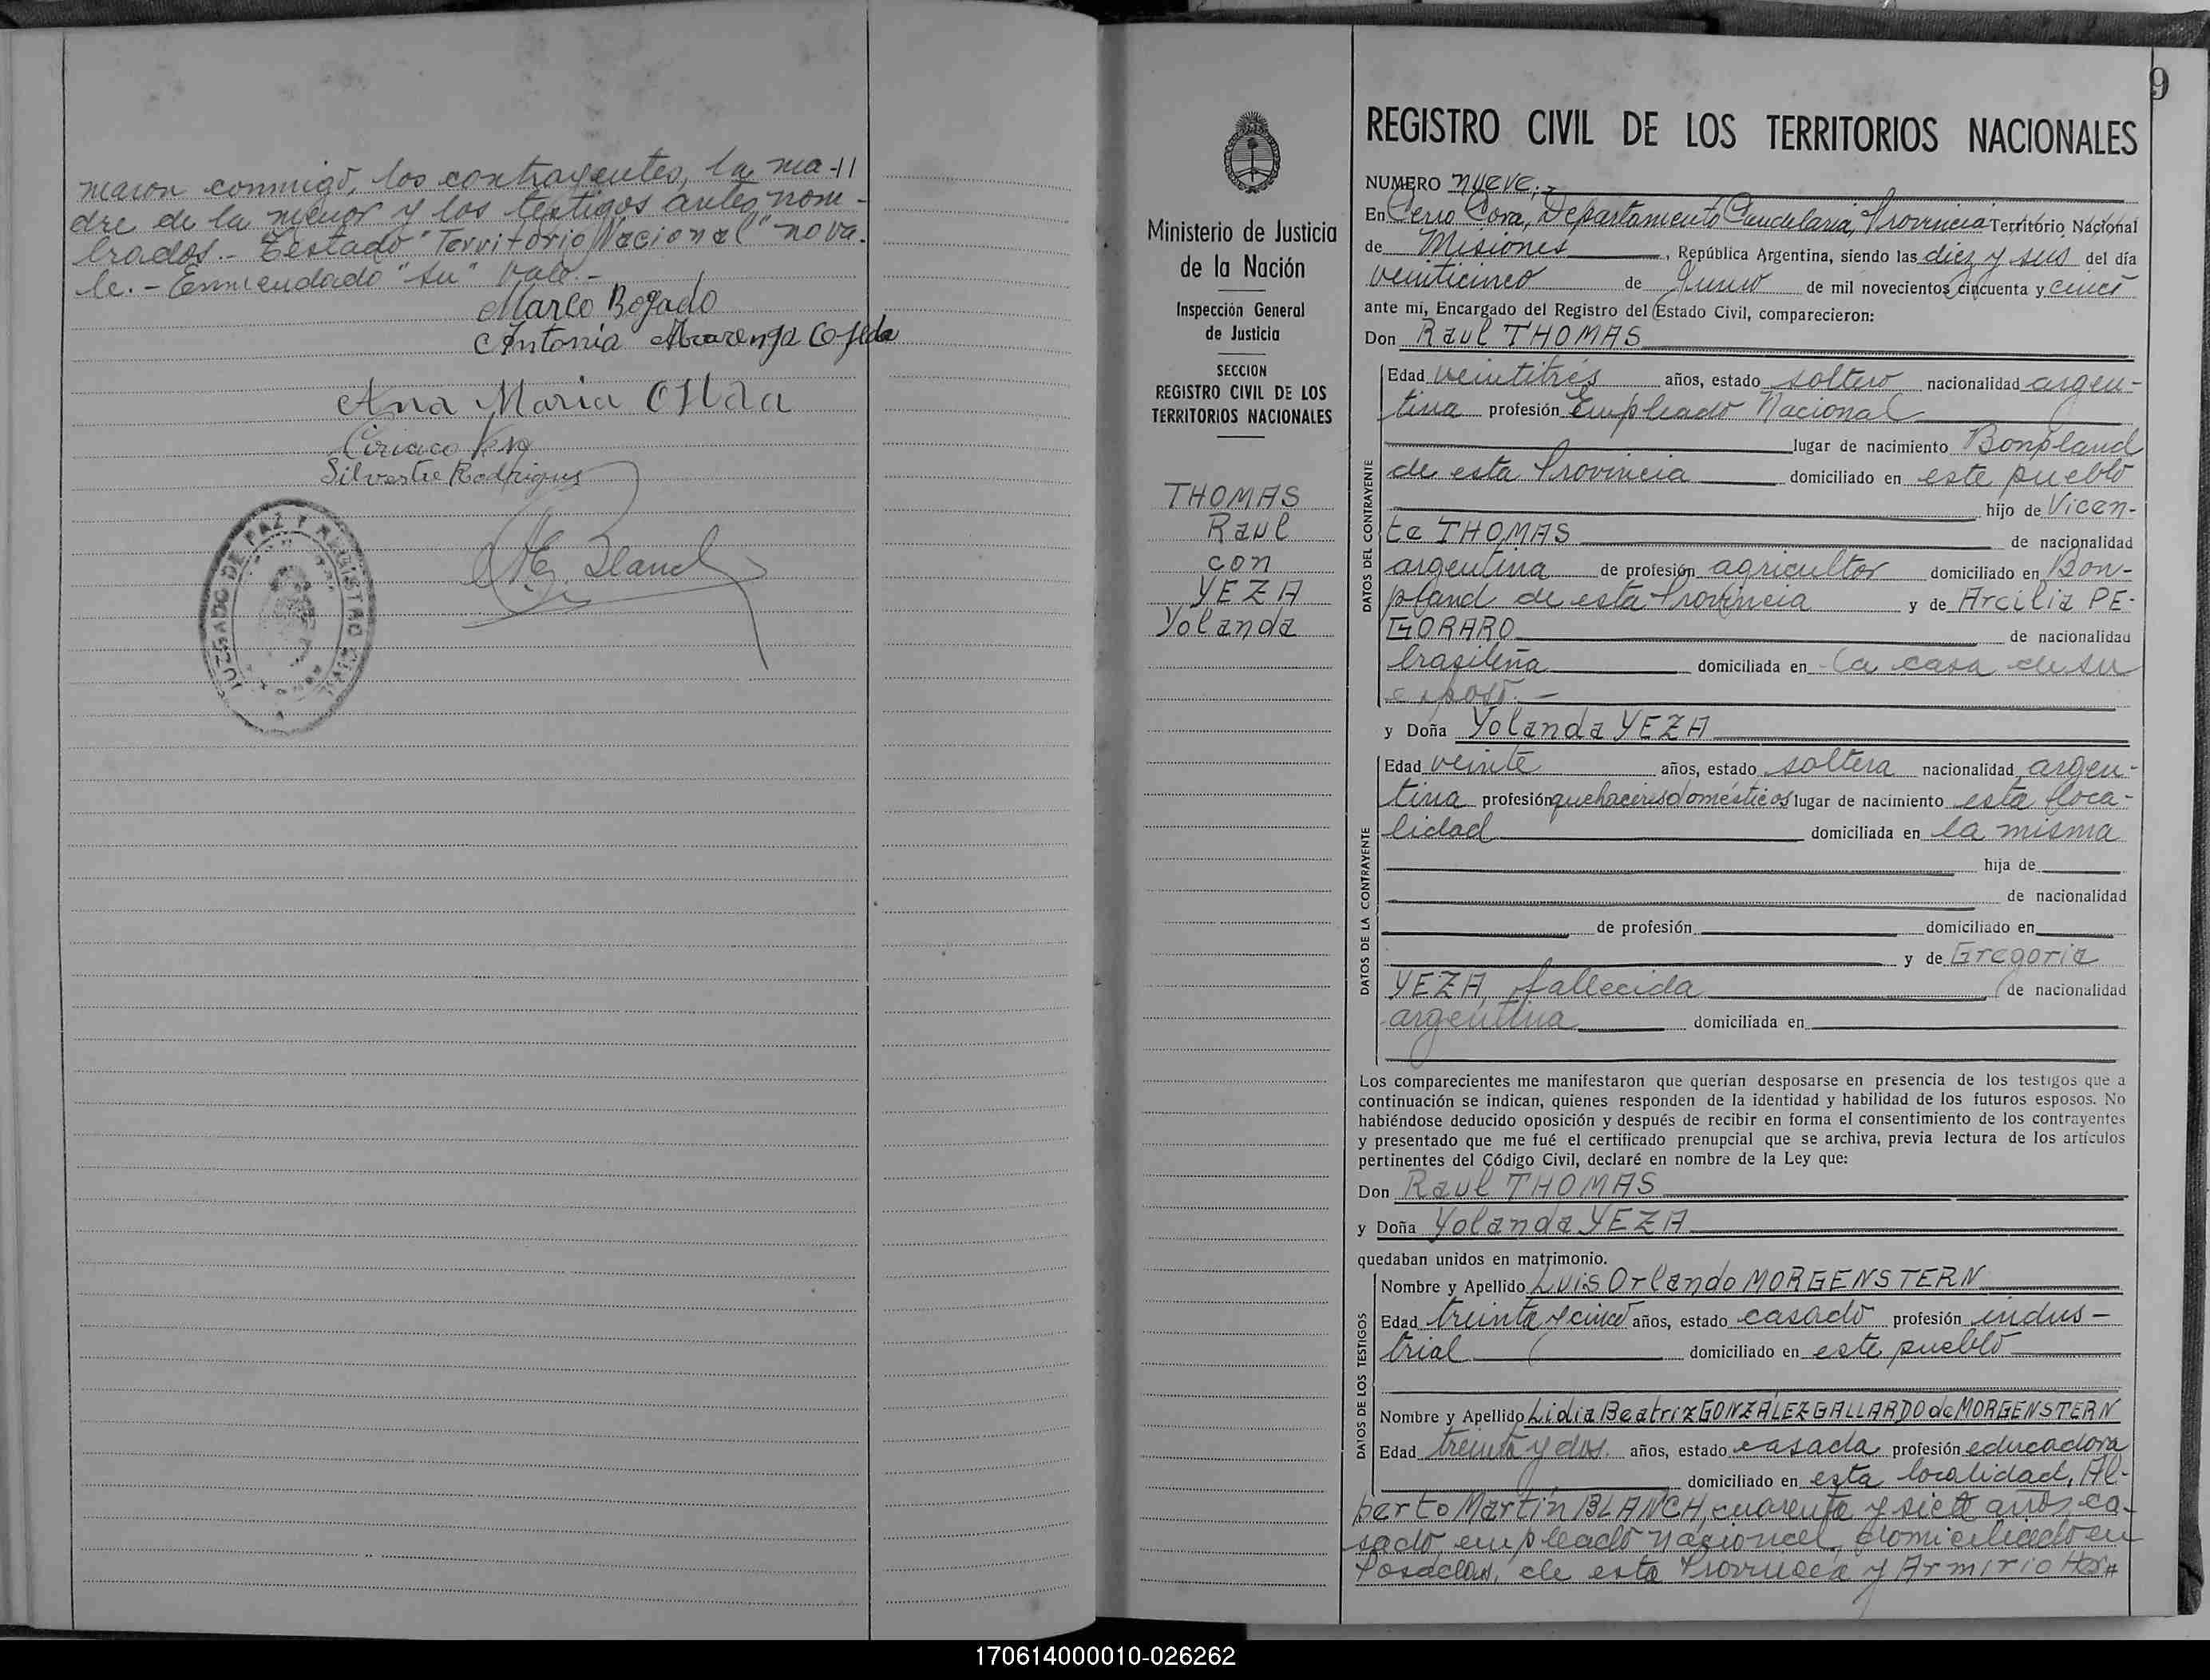 maron conmigo, los contrayentes, la ma-
dre de la menor y los testigos antes nom-
brados.- Testado "Territorio Nacional" no va-
le.- Enmendado "su" vale.-
Marco Bogado
Antonia
Ana Maria
Ciriaco
Silvestre Rodriguez
JUZGADO DE PAZ Y REGISTRO CIVIL
Ministerio de Justicia
de la Nación
Inspección General
de Justicia
SECCION
REGISTRO CIVIL DE LOS
TERRITORIOS NACIONALES
THOMAS
Raul
con
YEZA
Yolanda
9
REGISTRO CIVIL DE LOS TERRITORIOS NACIONALES
NUMERO nueve.-
En Cerro Cora, Departamento Candelaria, Provincia Territorio Nacional
de Misiones, República Argentina, siendo las diez y seis del día
veinticinco de Junio de mil novecientos cincuenta y cinco
ante mí, Encargado del Registro del Estado Civil, comparecieron:
Don Raul THOMAS
DATOS DEL CONTRAYENTE
Edad veintitrés años, estado soltero nacionalidad argen-
tina profesión Empleado Nacional
lugar de nacimiento Bonpland
de esta Provincia domiciliado en este pueblo
hijo de Vicen-
te THOMAS de nacionalidad
argentina de profesión agricultor domiciliado en Bon-
pland de esta Provincia y de Arcilia PE-
GORARO de nacionalidad
brasileña domiciliada en la casa de su
esposo.-
y Doña Yolanda YEZA
DATOS DE LA CONTRAYENTE
Edad veinte años, estado soltera nacionalidad argen-
tina profesión quehaceres domésticos lugar de nacimiento esta loca-
lidad domiciliada en la misma
hija de
de nacionalidad
de profesión domiciliado en
y de Gregoria
YEZA, fallecida de nacionalidad
argentina domiciliada en
Los comparecientes me manifestaron que querían desposarse en presencia de los testigos que a
continuación se indican, quienes responden de la identidad y habilidad de los futuros esposos. No
habiéndose deducido oposición y después de recibir en forma el consentimiento de los contrayentes
y presentado que me fué el certificado prenupcial que se archiva, previa lectura de los artículos
pertinentes del Código Civil, declaré en nombre de la Ley que:
Don Raul THOMAS
y Doña Yolanda YEZA
quedaban unidos en matrimonio.
DATOS DE LOS TESTIGOS
Nombre y Apellido Luis Orlando MORGENSTERN
Edad treinta y cinco años, estado casado profesión indus-
trial domiciliado en este pueblo
Nombre y Apellido Lidia Beatriz GONZALEZ GALLARDO de MORGENSTERN
Edad treinta y dos años, estado casada profesión educadora
domiciliado en esta localidad, Al-
berto Martin BLANCH, cuarenta y siete años, ca-
sado, empleado nacional, domiciliado en
Posadas, de esta Provincia y Armirio
170614000010-026262